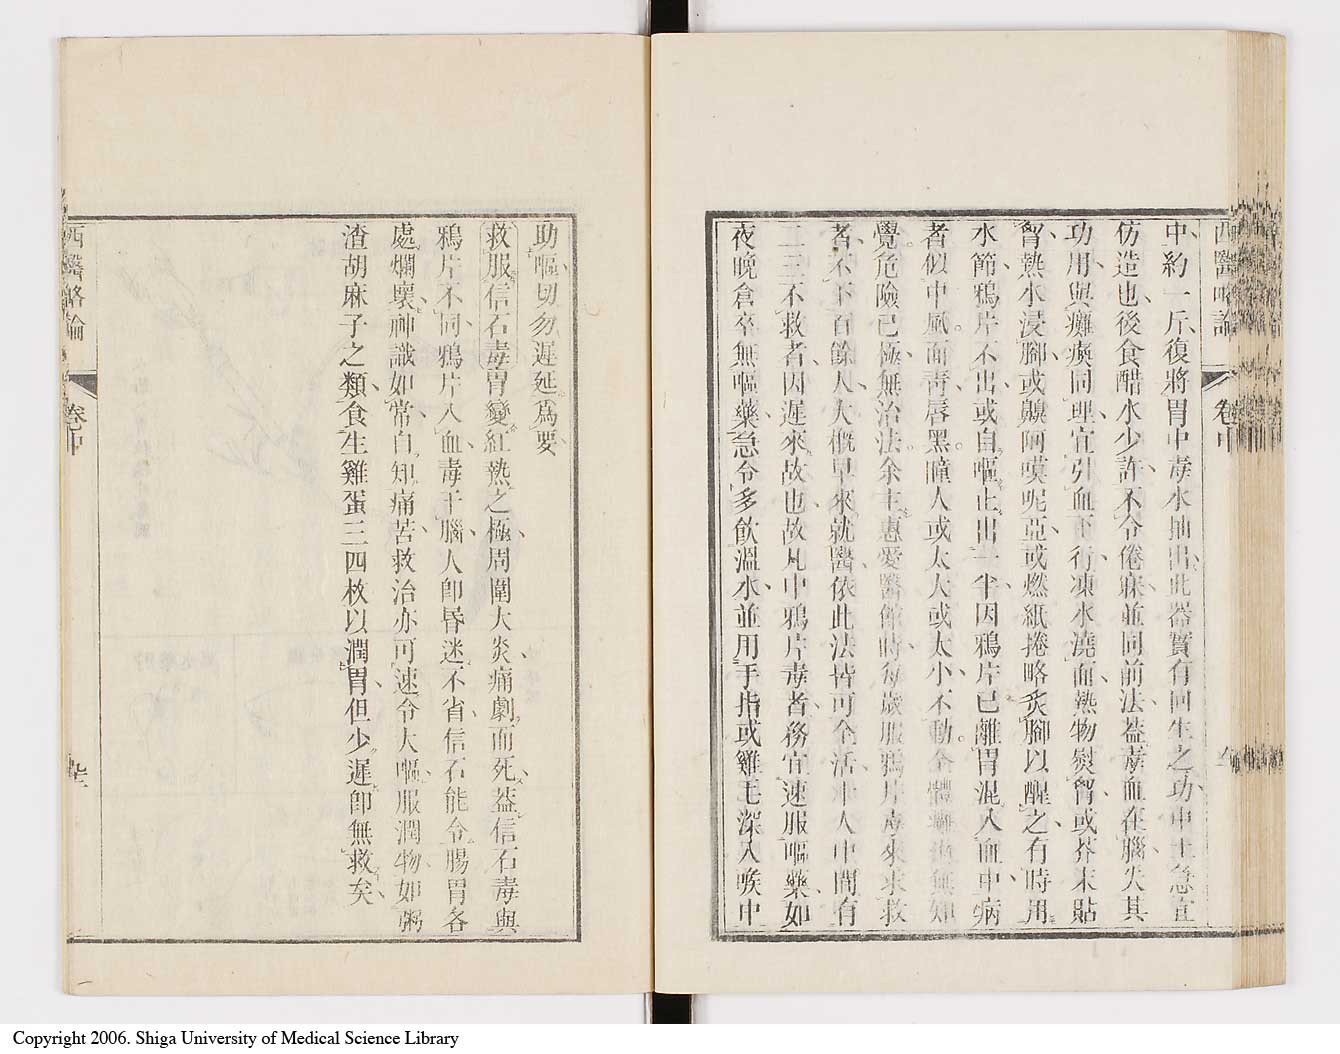 西醫略論 卷中
中約一斤復將胃中毒水抽出此器實有回生之功中土急宜
仿造也後食醋水少許不令倦寐並同前法蓋毒血在腦失其
功用與癱瘓同理宜引血下行凍水澆面熱物熨胷或芥末貼
胷熱水浸腳或鼻阿嗼呢亞或燃紙捲略炙腳以醒之有時用
水節鴉片不出或自嘔止出一半因鴉片已離胃混入血中病
者似中風面青唇黑瞳人或太大或太小不動全體癱軟無知
覺危險已極無治法余主惠愛醫館時每歲服鴉片毒來求救
者不下百餘人大概早來就醫依此法皆可全活十人中間有
二三不救者因遲來故也故凡中鴉片毒者務宜速服嘔藥如
夜晚倉卒無嘔藥急令多飲溫水並用手指或雞毛深入喉中
助嘔切勿遲延爲要
救服信石毒胃變紅熱之極周圍大炎痛劇而死蓋信石毒與
鴉片不同鴉片入血毒干腦人卽昏迷不省信石能令腸胃各
處爛壞神識如常自知痛苦救治亦可速令大嘔服潤物如粥
渣胡麻子之類食生雞蛋三四枚以潤胃但少遲卽無救矣
西醫略論 卷中
Copyright 2006. Shiga University of Medical Science Library